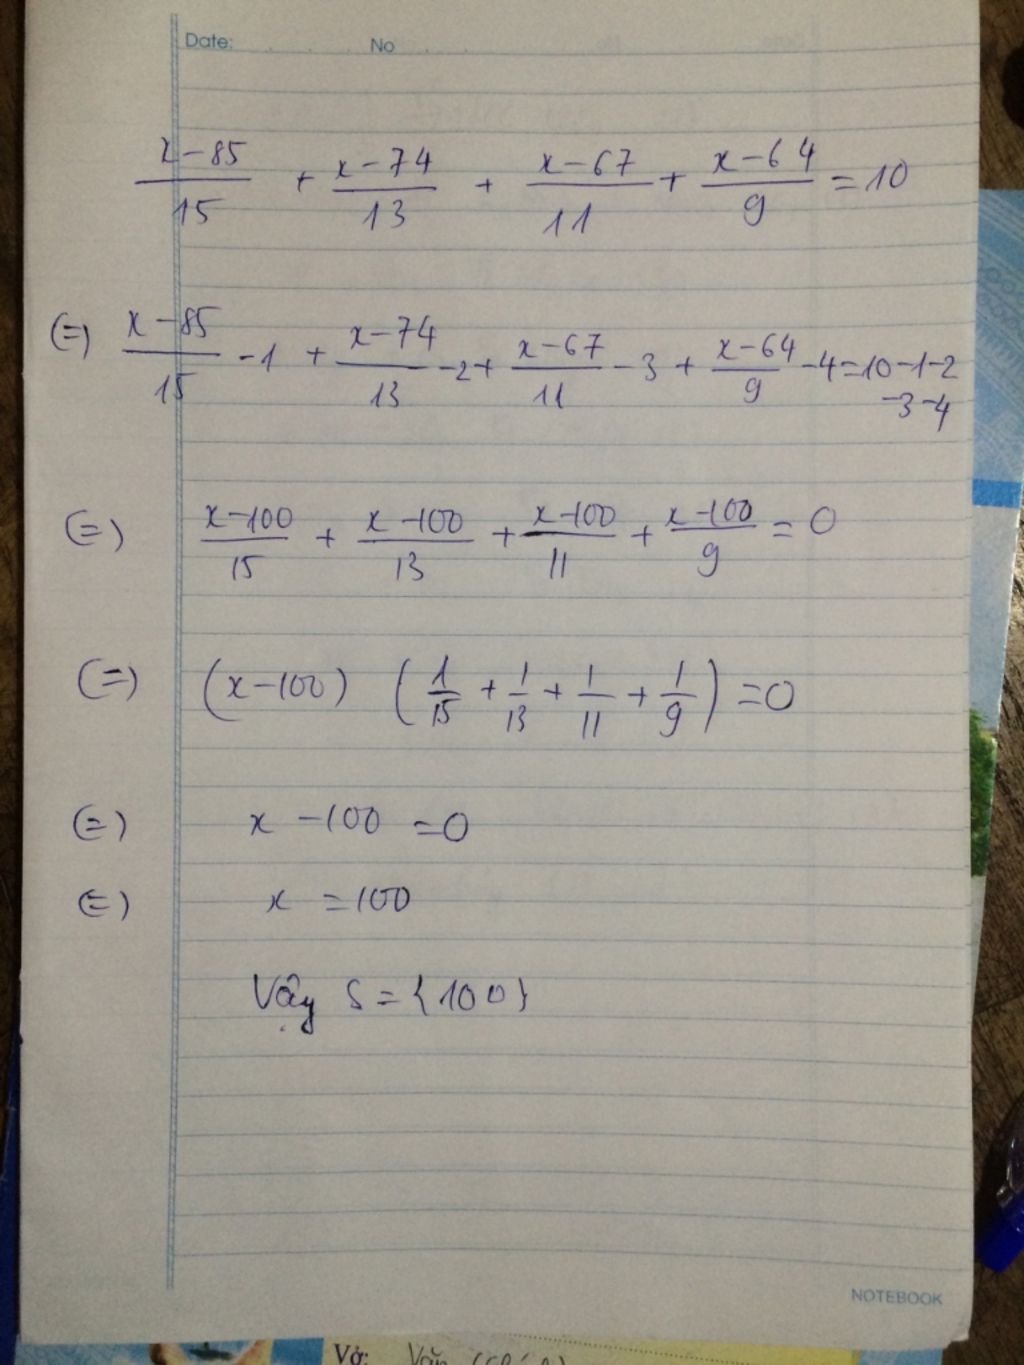 Date: No
x-85/15 + x-74/13 + x-67/11 + x-64/9 = 10
(=) x-85/15 -1 + x-74/13 -2 + x-67/11 -3 + x-64/9 -4 = 10-1-2
-3-4
(=) x-100/15 + x-100/13 + x-100/11 + x-100/9 = 0
(=) (x-100) (1/15 + 1/13 + 1/11 + 1/9) = 0
(=) x-100 = 0
(=) x = 100
Vậy S = {100}
NOTEBOOK
Vở: Văn